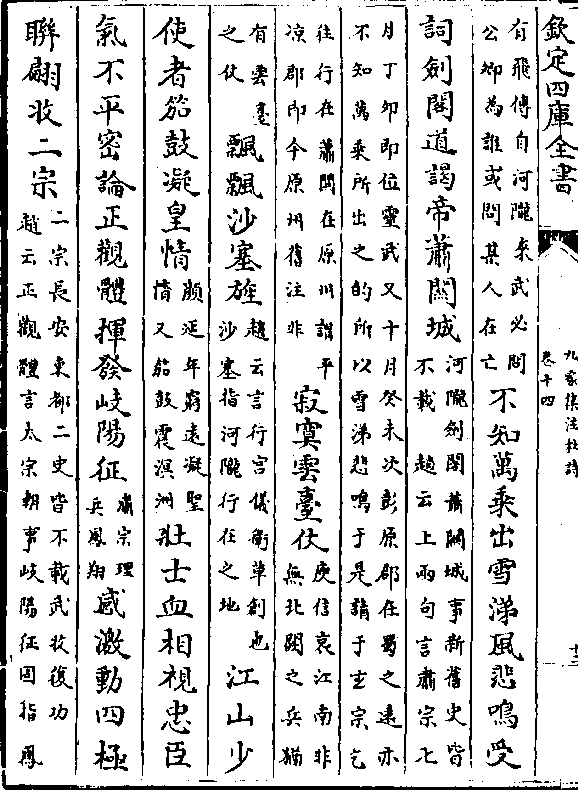 欽定四庫全書
九家集注杜詩
卷十四
有飛傳自河隴來武必問
公卿為誰或問某人在亡
不知萬乘出雪涕風悲鳴受
詞劍閣道謁帝蕭關城
河隴劍閣蕭關城事新舊史皆
不載 趙云上兩句言肅宗七
月丁卯即位靈武又十月癸未次彭原郡在蜀之遠亦
不知萬乘所出之的所以雪涕悲鳴于是請于玄宗乞
往行在蕭關在原州謂平
凉郡即今原州舊注非
寂寞雲臺仗
庾信哀江南非
無北闕之兵猶
有雲臺
之仗
飄飄沙塞旌
趙云言行宮儀衛草創也
沙塞指河隴行在之地
江山少
使者笳鼓凝皇情
顏延年窮遠凝聖
情又笳鼓震溟洲
壯士血相視忠臣
氣不平密論正觀體揮發岐陽征
肅宗理
兵鳳翔
感激動四極
聯翩收二宗
二宗長安東都二史皆不載武收復功
趙云正觀體言太宗朝事岐陽征固指鳳